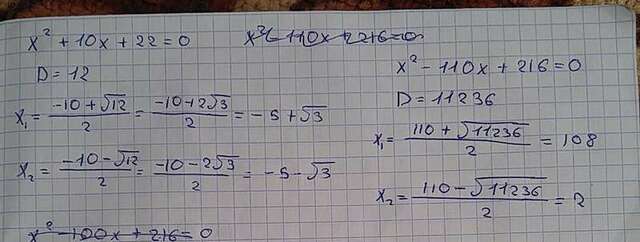 x² + 10x + 22 = 0
D = 12
x₁ = (-10 + √12)/2 = (-10 + 2√3)/2 = -5 + √3
x₂ = (-10 - √12)/2 = (-10 - 2√3)/2 = -5 - √3
x² - 100x + 216 = 0
x² - 110x + 216 = 0
x² - 110x + 216 = 0
D = 11236
x₁ = (110 + √11236)/2 = 108
x₂ = (110 - √11236)/2 = 2